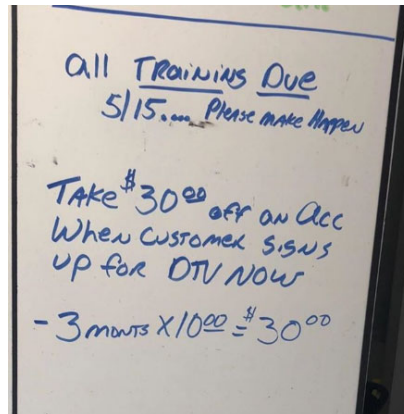 all TRAINING Due
5/15.... Please make Happen
TAKE $30.00 off an acc
When CUSTOMER SIGNS
UP for DTV NOW
- 3 monts X 10.00 = $30.00